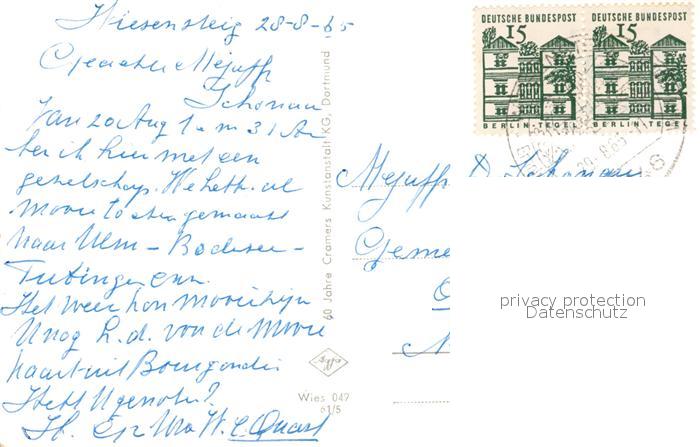 Wiesensteig 28-8-65
Geachte Mejuffr
Schonau
Van 20 Aug t m 31 Au
ben ik hier met een
gezelschap. We hebb. al
mooie tochten gemaakt
naar Ulm – Bodensee –
Tutlingen enz.
Het weer kon mooier zijn
U nog h. d. voor de mooie
kaart uit Bourgondië
Hebt U genoten?
H. Gr. Uw W. C. Quast
60 Jahre Cramers Kunstanstalt KG, Dortmund
Wies 047
61/5
DEUTSCHE BUNDESPOST
15
BERLIN-TEGEL
DEUTSCHE BUNDESPOST
15
BERLIN-TEGEL
Mejuffr D Schonau
Geme
privacy protection
Datenschutz